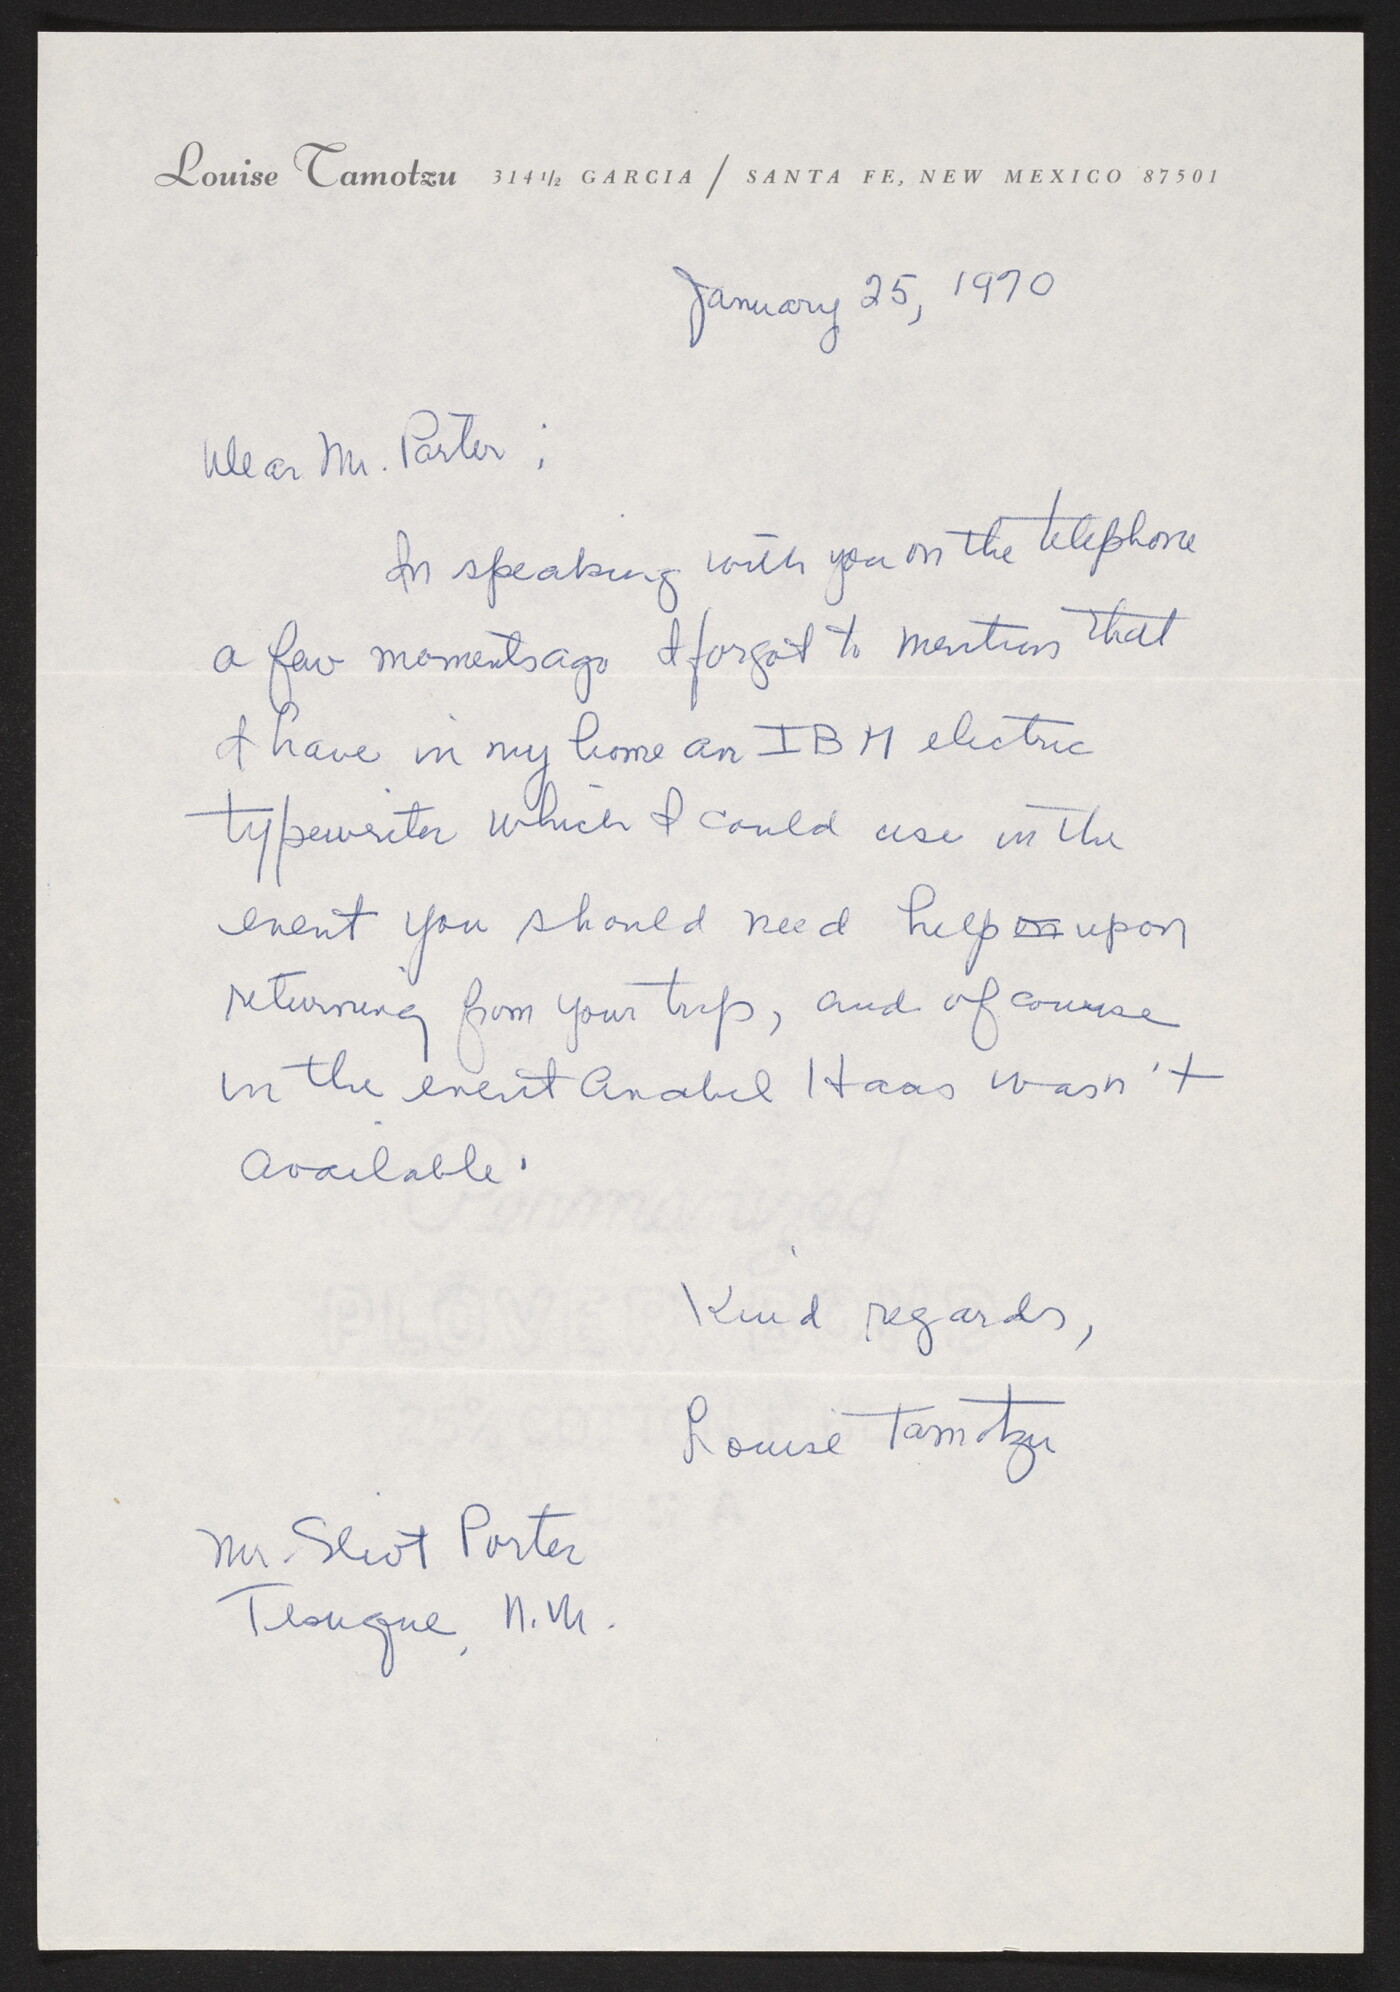 Louise Tamotzu 314 1/2 GARCIA / SANTA FE, NEW MEXICO 87501
January 25, 1970
Dear Mr. Porter;
In speaking with you on the telephone
a few moments ago I forgot to mention that
I have in my home an IBM electric
typewriter which I could use in the
event you should need help on upon
returning from your trip, and of course
in the event Anabel Haas wasn't
available.
Kind regards,
Louise Tamotzu
Mr. Eliot Porter
Tesuque, N.M.